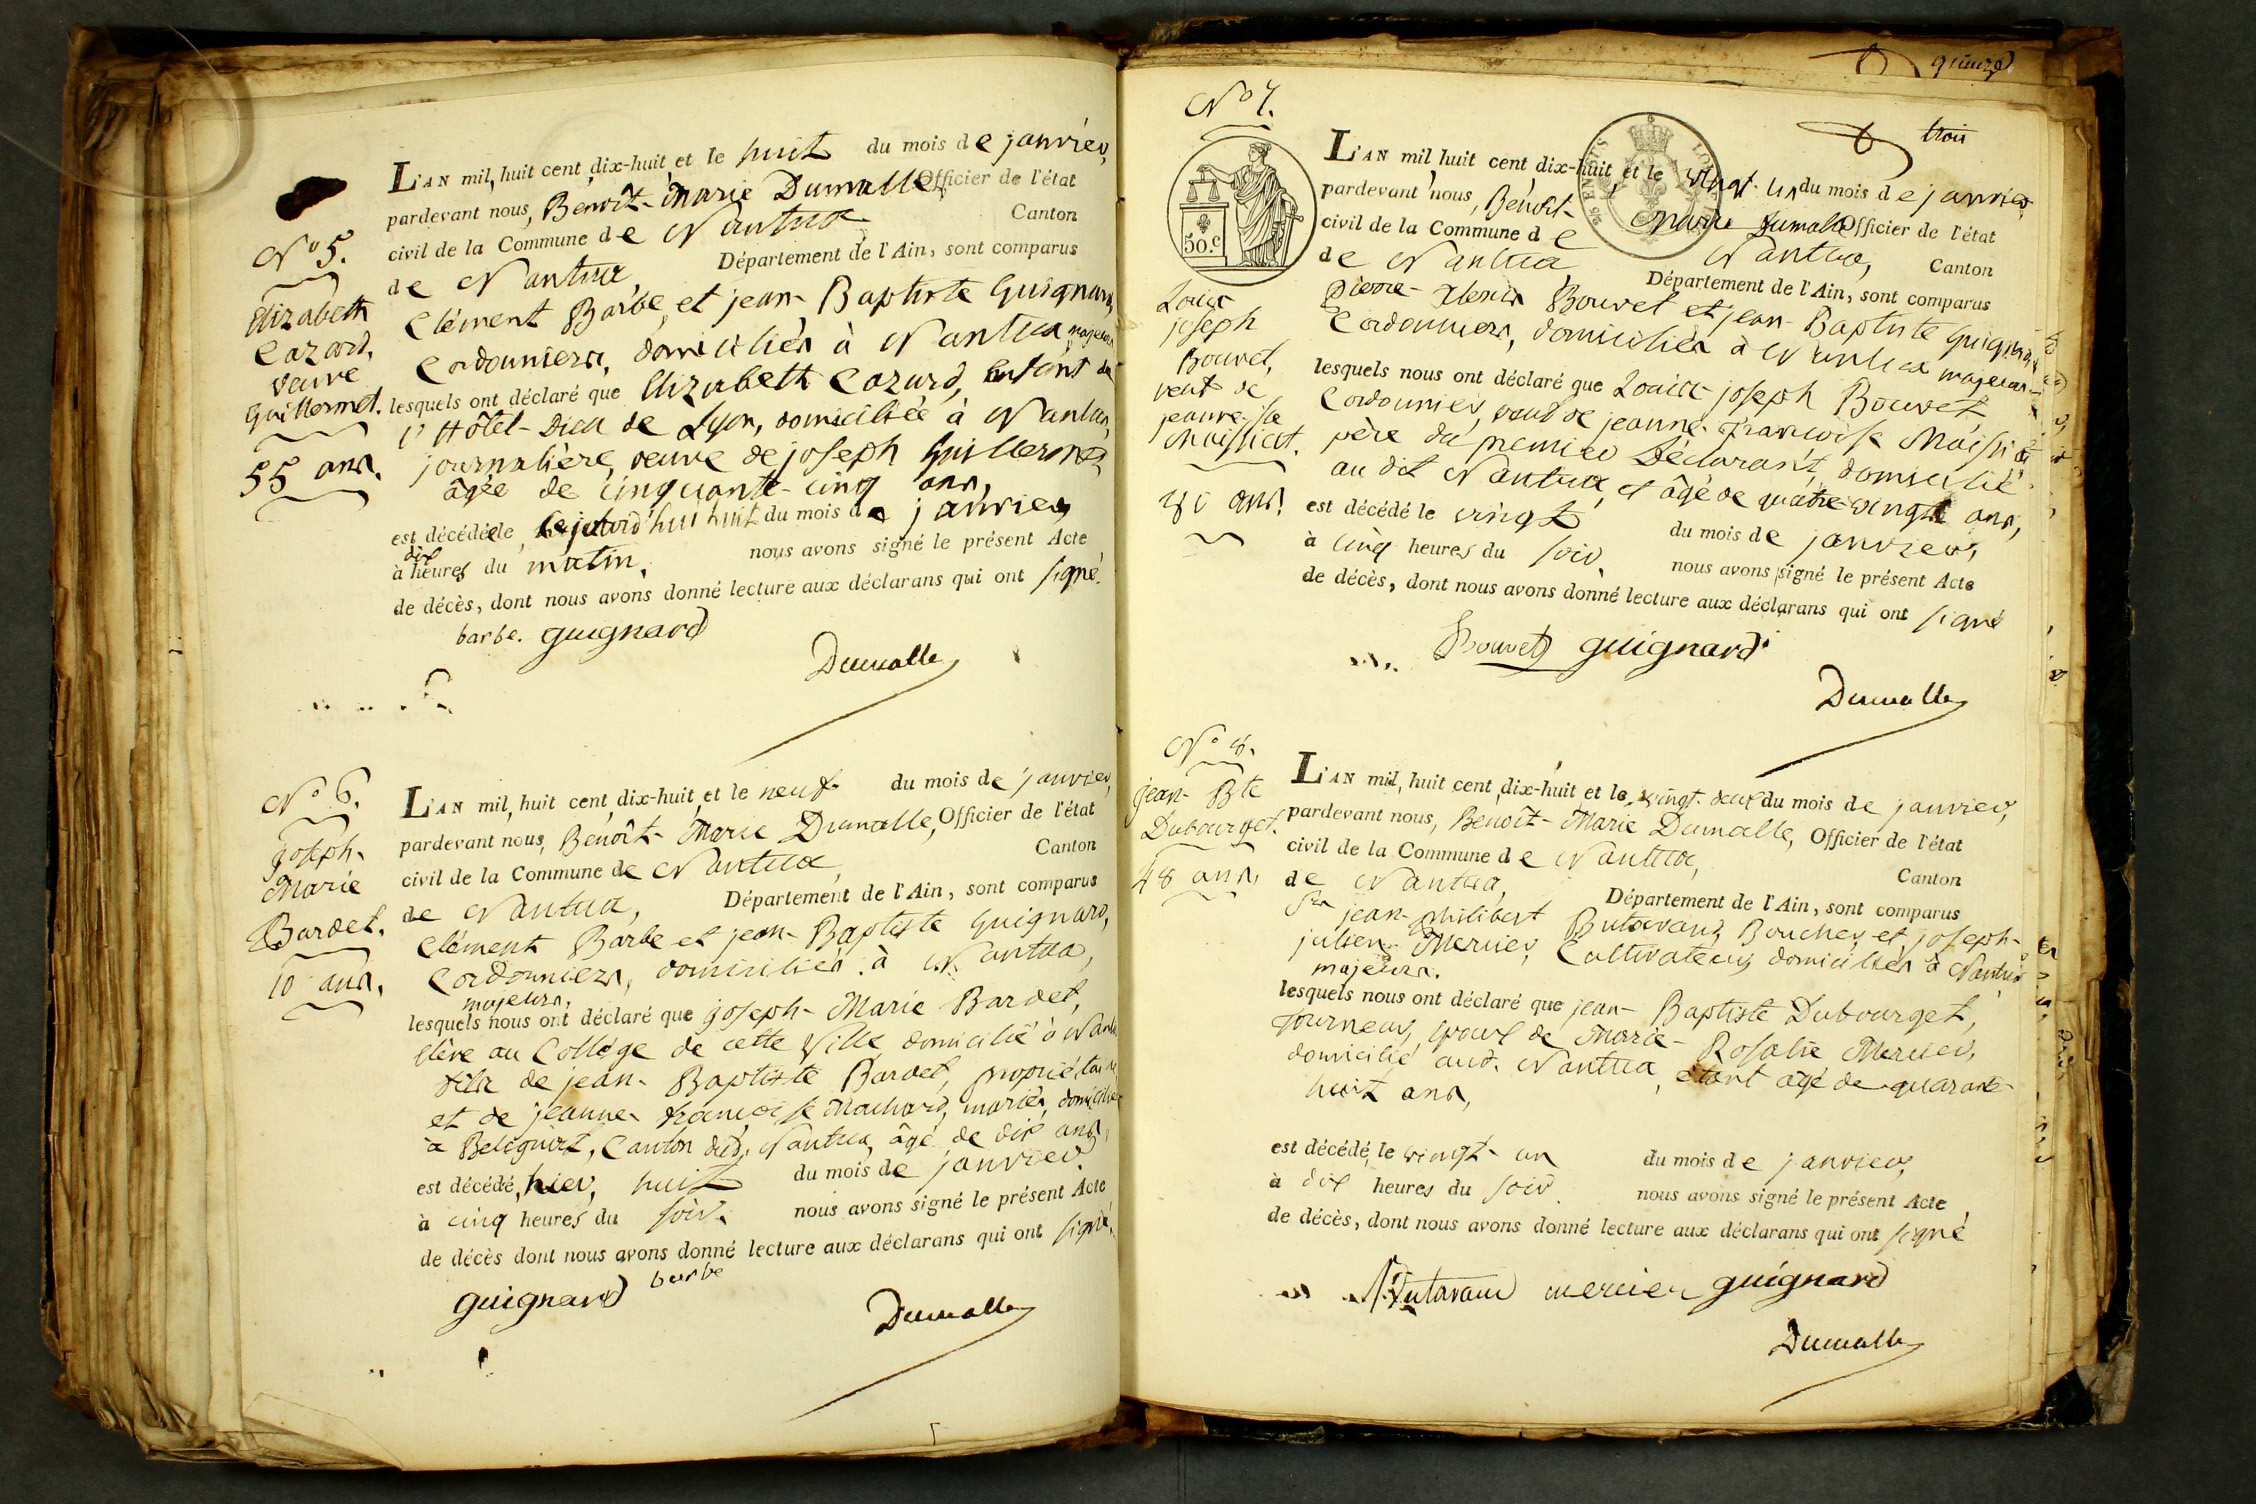 N° 5.
Elizabeth
Cazard,
veuve
Guillermet.
55 ans.
L'AN mil, huit cent, dix-huit, et le huit du mois de janvier,
pardevant nous, Benoît-Marie Dumalle, Officier de l'état
civil de la Commune de Nantua Canton
de Nantua Département de l'Ain, sont comparus
Clément Barbe, et jean-Baptiste Guignard,
Cordonniers, domiciliés à Nantua, majeurs
lesquels ont déclaré que Elizabeth Cazard, enfant de
l'Hôtel-Dieu de Lyon, domiciliée à Nantua,
journalière, veuve de joseph Guillermet,
âgée de cinquante-cinq ans,
est décédée le aujourd'hui huit du mois de janvier
à dix heures du matin. nous avons signé le présent Acte
de décès, dont nous avons donné lecture aux déclarans qui ont signé.
barbe. guignard
Dumalle
N° 6.
joseph-
Marie
Bardet.
10 ans.
L'AN mil, huit cent, dix-huit, et le neuf du mois de janvier,
pardevant nous, Benoît-Marie Dumalle, Officier de l'état
civil de la Commune de Nantua, Canton
de Nantua, Département de l'Ain, sont comparus
Clément Barbe et jean-Baptiste Guignard,
Cordonniers, domiciliés à Nantua,
majeurs.
lesquels nous ont déclaré que joseph-Marie Bardet,
Elève au Collége de cette Ville domicilié à Nantua
fils de jean-Baptiste Bardet, propriétaire
et de jeanne-françoise Machard, mariés, domiciliés
à Belignat, Canton dud. Nantua, âgé de dix ans,
est décédé, hier, huit du mois de janvier.
à cinq heures du soir. nous avons signé le présent Acte
de décès dont nous avons donné lecture aux déclarans qui ont signé.
guignard barbe
Dumalle
quinze
trois
N° 7.
50.c
Louis
joseph
Bouvet,
veuf de
jeanne-fse
Maissiat.
80 ans.
L'AN mil, huit cent, dix-huit, et le vingt-un du mois de janvier
pardevant nous, Benoît-Marie Dumalle Officier de l'état
civil de la Commune de Nantua, Canton
de Nantua Département de l'Ain, sont comparus
Pierre-Alexis Bouvet et jean-Baptiste Guignard
Cordonniers, domiciliés à Nantua majeurs
lesquels nous ont déclaré que Louis-joseph Bouvet
Cordonnier, veuf de jeanne-françoise Maissiat
père du premier Déclarant, domicilié
au dit Nantua, et âgé de quatre-vingt ans,
est décédé le vingt du mois de janvier,
à cinq heures du soir. nous avons signé le présent Acte
de décès, dont nous avons donné lecture aux déclarans qui ont signé
Bouvet guignard
Dumalle
N° 8.
jean-Bte
Dubourget.
48 ans,
L'AN mil, huit cent, dix-huit et le vingt-deux du mois de janvier,
pardevant nous, Benoît-Marie Dumalle, Officier de l'état
civil de la Commune de Nantua, Canton
de Nantua, Département de l'Ain, sont comparus
Srs jean-philibert Butavand, Boucher, et joseph-
julien Mercier, Cultivateur, domiciliés à Nantua
majeurs.
lesquels nous ont déclaré que jean-Baptiste Dubourget,
Tourneur, époux de Marie-Rosalie Mercier,
domicilié aud. Nantua, étant âgé de quarante-
huit ans,
est décédé, le vingt-un du mois de janvier,
à dix heures du soir. nous avons signé le présent Acte
de décès, dont nous avons donné lecture aux déclarans qui ont signé
Butavand mercier guignard
Dumalle